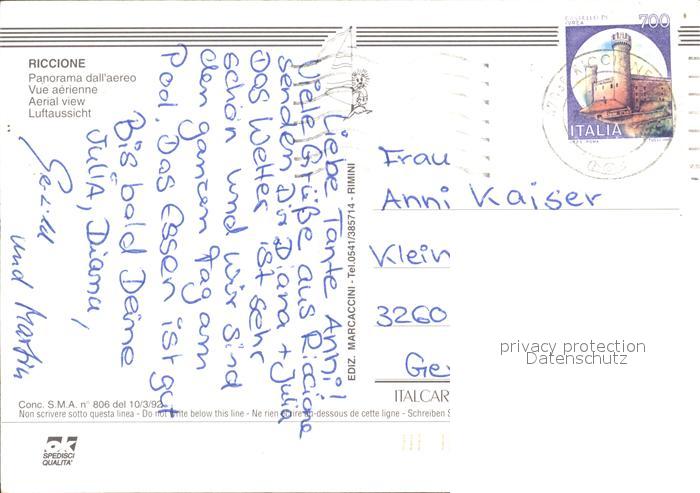 RICCIONE
Panorama dall'aereo
Vue aérienne
Aerial view
Luftaussicht
Liebe Tante Anni!
Viele Grüße aus Riccione
senden Dir Diana + Julia
Das Wetter ist sehr
schön und wir sind
den ganzen Tag am
Pool. Das Essen ist gut
Bis bald Deine
Julia, Diana,
und Martin
EDIZ. MARCACCINI - Tel.0541/385714 - RIMINI
700
ITALIA
RICCIONE
Frau
Anni Kaiser
Klein
3260
Ge
privacy protection
Datenschutz
ITALCAR
Conc. S.M.A. n° 806 del 10/3/92
Non scrivere sotto questa linea - Do not write below this line - Ne rien écrire au-dessous de cette ligne - Schreiben S
ak
SPEDISCI
QUALITA'